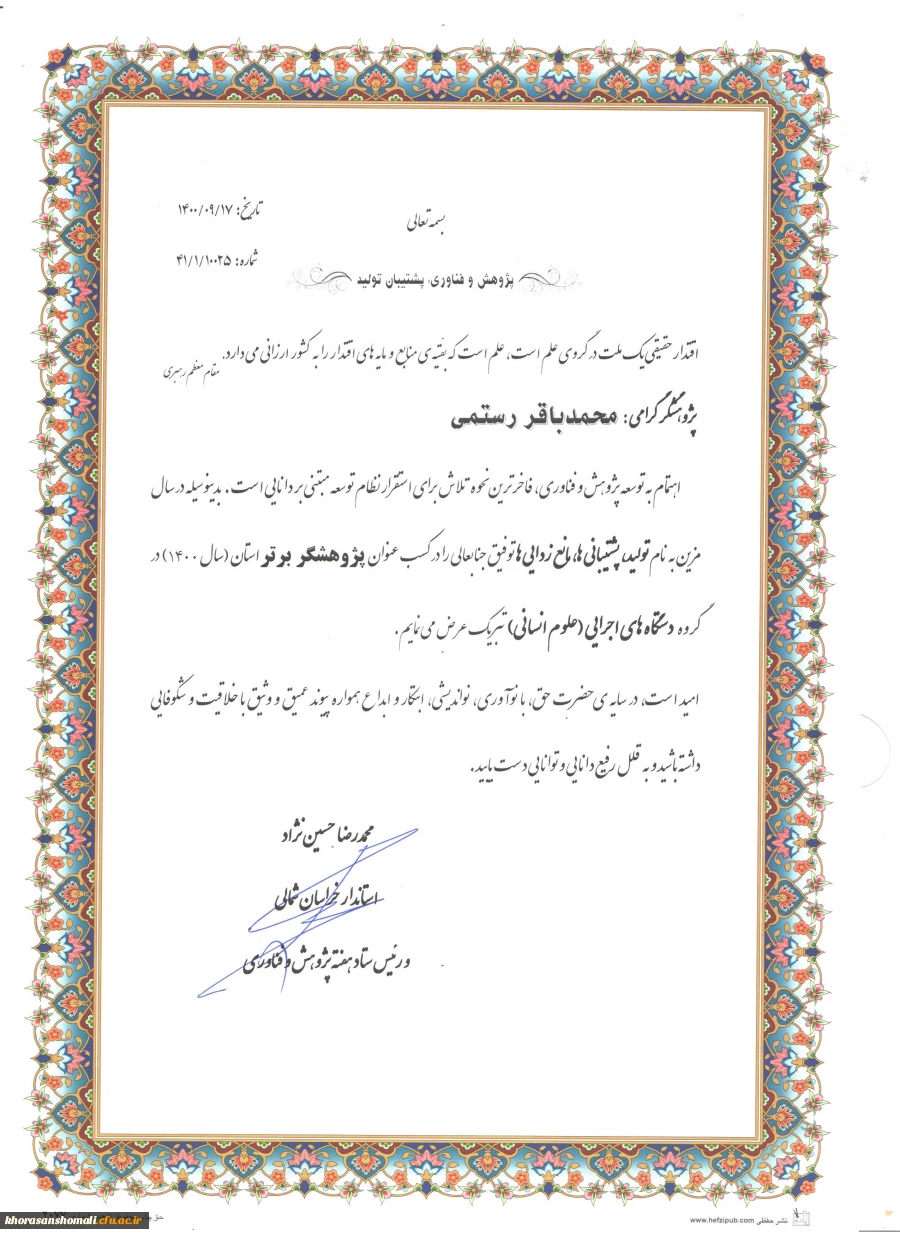 بسمه تعالی
تاریخ: ۱۴۰۰/۰۹/۱۷
شماره: ۴۱/۱/۱۰۰۲۵
پژوهش و فناوری، پشتیبان تولید
اقتدار حقیقی یک ملت در گروی علم است، علم است که بقیّه ی منابع و مایه های اقتدار را به کشور ارزانی می دارد.
مقام معظم رهبری
پژوهشگر گرامی: محمدباقر رستمی
اهتمام به توسعه پژوهش و فناوری، فاخرترین نحوه تلاش برای استقرار نظام توسعه مبتنی بر دانایی است. بدینوسیله در سال
مزین به نام تولید، پشتیبانی ها، مانع زدایی ها توفیق جنابعالی را در کسب عنوان پژوهشگر برتر استان (سال ۱۴۰۰) در
گروه دستگاه های اجرایی (علوم انسانی) تبریک عرض می نمایم.
امید است، در سایه ی حضرت حق، با نوآوری، نواندیشی، ابتکار و ابداع همواره پیوند عمیق و وثیق با خلاقیت و شکوفایی
داشته باشید و به قلل رفیع دانایی و توانایی دست یابید.
محمدرضا حسین نژاد
استاندار خراسان شمالی
و رئیس ستاد هفته پژوهش و فناوری
نشر حفظی www.hefzipub.com
khorasanshomali.cfu.ac.ir